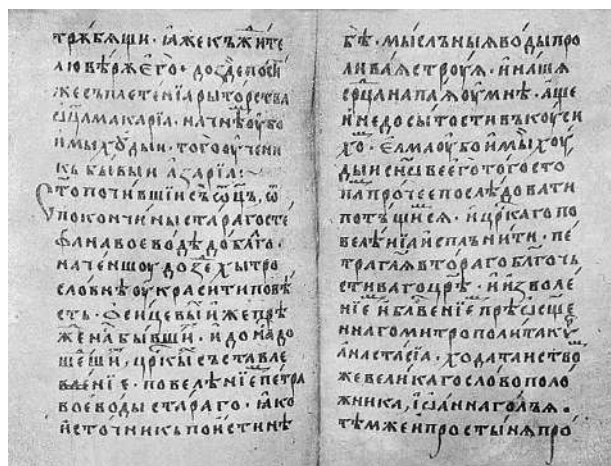 трѫбѧщи · ꙗже къжите
лю вѣрже єго · дозде по сѝ
же съплетенїа рыторства
ѡⷮца макарїа · начнѣⷨ оубо
и мы хоудыи · того оученн
къ бывыи азарїа
то почившїи съ ѿцъ, ѿ
по кончины стараго сте
фана воеводѣ добⷧ҇аго ·
наченшоу дозде хытро
словнѣ оукрасити повѣ
сть · ѡ сицевыⷯ иже прѣ
жⷣе на бывшиⷯ · и до наⷭ҇ до
шеⷣшиⷯ, црⷭ҇кыⷯ съставле
влѐнїе · повелѣнїеⷨ петра
воеводы стараго · ꙗко
источникь поистинѣ
бѣ · мысльныѧ воды про
ливаѧ строуѧ · и нашѧ
срⷣца напаѧ оумнѣ · аще
и недосытости въкоуси
хоⷨ · єлма оубо и мы хоу
дыи сице его того сто
па прочее послѣдовати
потъщисѧ · и црⷭ҇каго по
велѣнїа исплънити · пе
тра гл҃ѧ втораго бл҃гочь
стиваго цр҃ѣ · и изволе
нїеⷨ и бл҃гвенїеⷨ прѣѡсщ҃е
ннаго митрополита кѵⷬ
анастасїа · ходатаиствоⷨ
же великаго слово поло
жника, іѡанна голъѧ ·
тѣм же и простынѧ про́